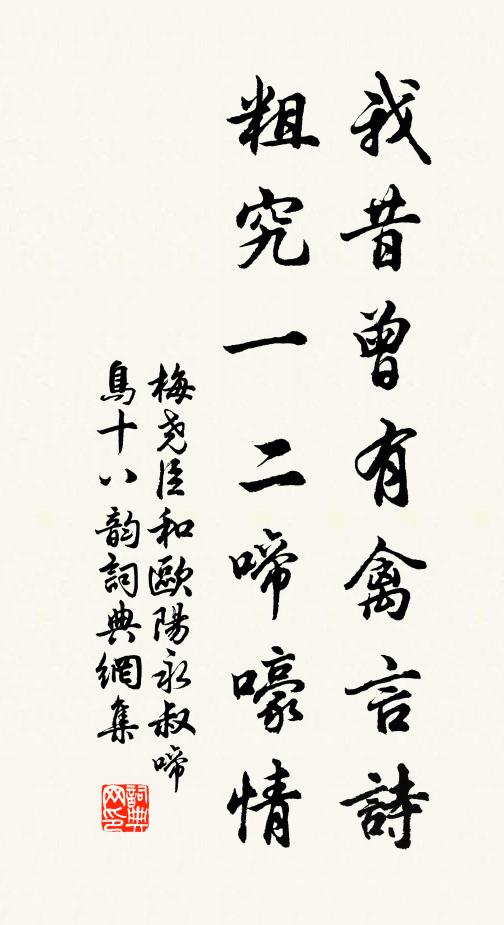 我昔曾有禽言詩
粗究一二啼嚎情
梅尧臣和歐陽永叔啼
鳥十八韵詞典網集